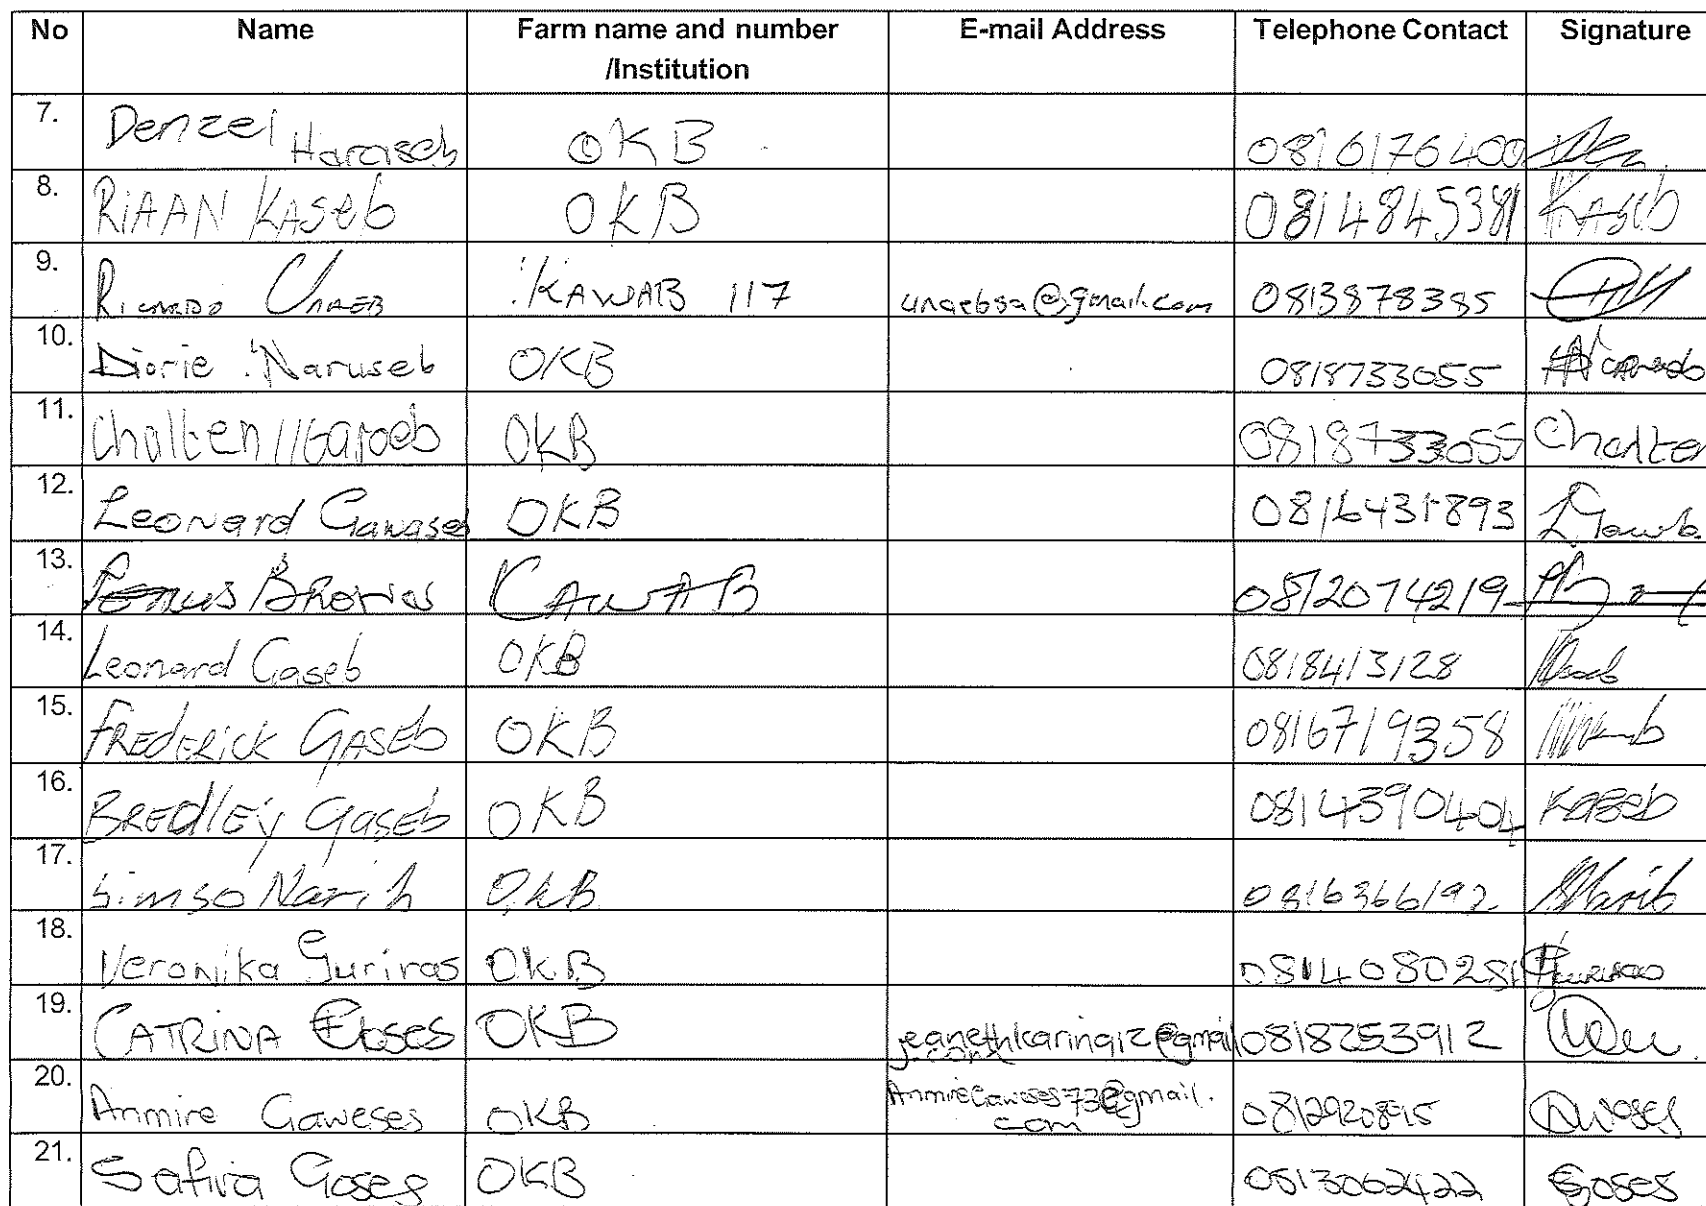 No Name Farm name and number /Institution E-mail Address Telephone Contact Signature
7. Denzel Haraseb OKB 0816176400
8. RIAAN KASEB OKB 0814845381 KASEB
9. Ricardo UNAEB !KAWAB 117 unaebsa@gmail.com 0813878385
10. Diorie !Naruseb OKB 0818733055
11. Chalten //Garoeb OKB 0818733055 Chalten
12. Leonard Gawaseb OKB 0816431893
13. KAWAB 0812074219
14. Leonard Gaseb OKB 0818413128
15. FREDERICK GASEb OKB 0816719358
16. BREdlEy GasEb OKB 0814390404 Kaseb
17. Simso Narib OKB 0816366192 Narib
18. Veronika Guriras OKB 0814080281
19. CATRINA Eises OKB jeanethkaringiz@gmail.com 0818253912
20. Anmire Gaweses OKB AnmireGaweses73@gmail.com 0812920895
21. Safira Goses OKB 0813062422 Goses